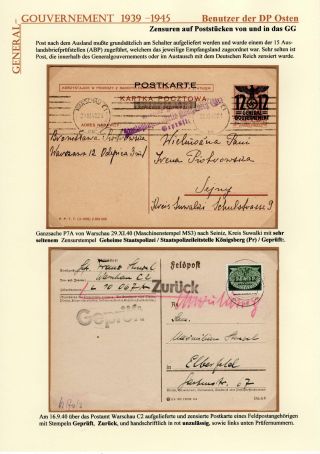 GENERAL-
GOUVERNEMENT 1939 –1945
Benutzer der DP Osten
Zensuren auf Poststücken von und in das GG
Post nach dem Ausland mußte grundsätzlich am Schalter aufgeliefert werden und wurde einem der 15 Aus-
landsbriefprüfstellen (ABP) zugeführt, welchem das jeweilige Empfangsland zugeordnet war. Sehr selten ist
Post, die innerhalb des Generalgouvernements oder im Austausch mit dem Deutschen Reich zensiert wurde.
POSTKARTE
KARTKA POCZTOWA
12 12
Geprüft!
Bronisława Piotrowska
Wielmożna Pani
Irena Piotrowska
Sejny
Kreis Suwalki Schulstrasse 9
Ganzsache P7A von Warschau 29.XI.40 (Maschinenstempel MS3) nach Seinitz, Kreis Suwalki mit sehr
seltenem Zensurstempel Geheime Staatspolizei / Staatspolizeileitstelle Königsberg (Pr) / Geprüft:
Feldpost
Warschau C2
Zurück
Geprüft
Elberfeld
Am 16.9.40 über das Postamt Warschau C2 aufgelieferte und zensierte Postkarte eines Feldpostangehörigen
mit Stempeln Geprüft, Zurück, und handschriftlich in rot unzulässig, sowie links unten Prüfernummern.